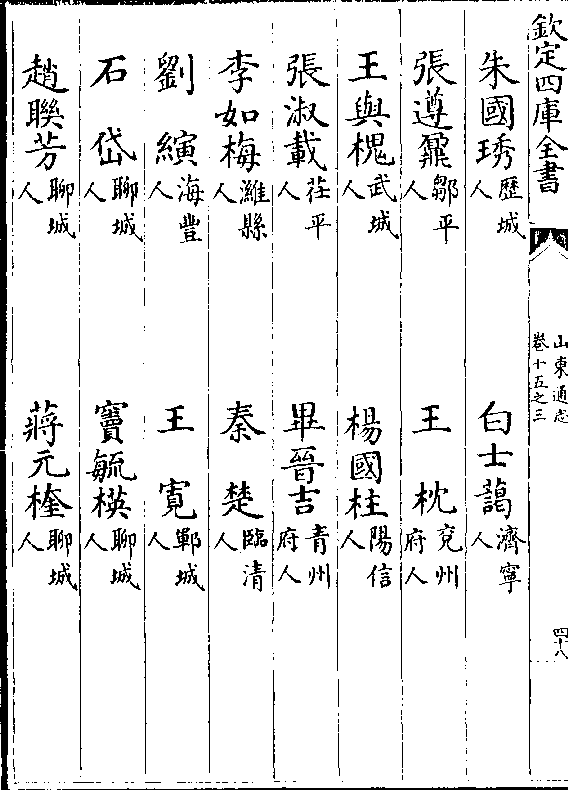 欽定四庫全書
山東通志
卷十五之三
四十八
朱國琇歷城人　白士藹濟寧人
張遵鼐鄒平人　王枕兖州府人
王與槐武城人　楊國柱陽信人
張淑載茌平人　畢晉吉青州府人
李如梅濰縣人　秦楚臨清人
劉縯海豐人　王寛鄆城人
石岱聊城人　竇毓楧聊城人
趙聯芳聊城人　蔣元楏聊城人